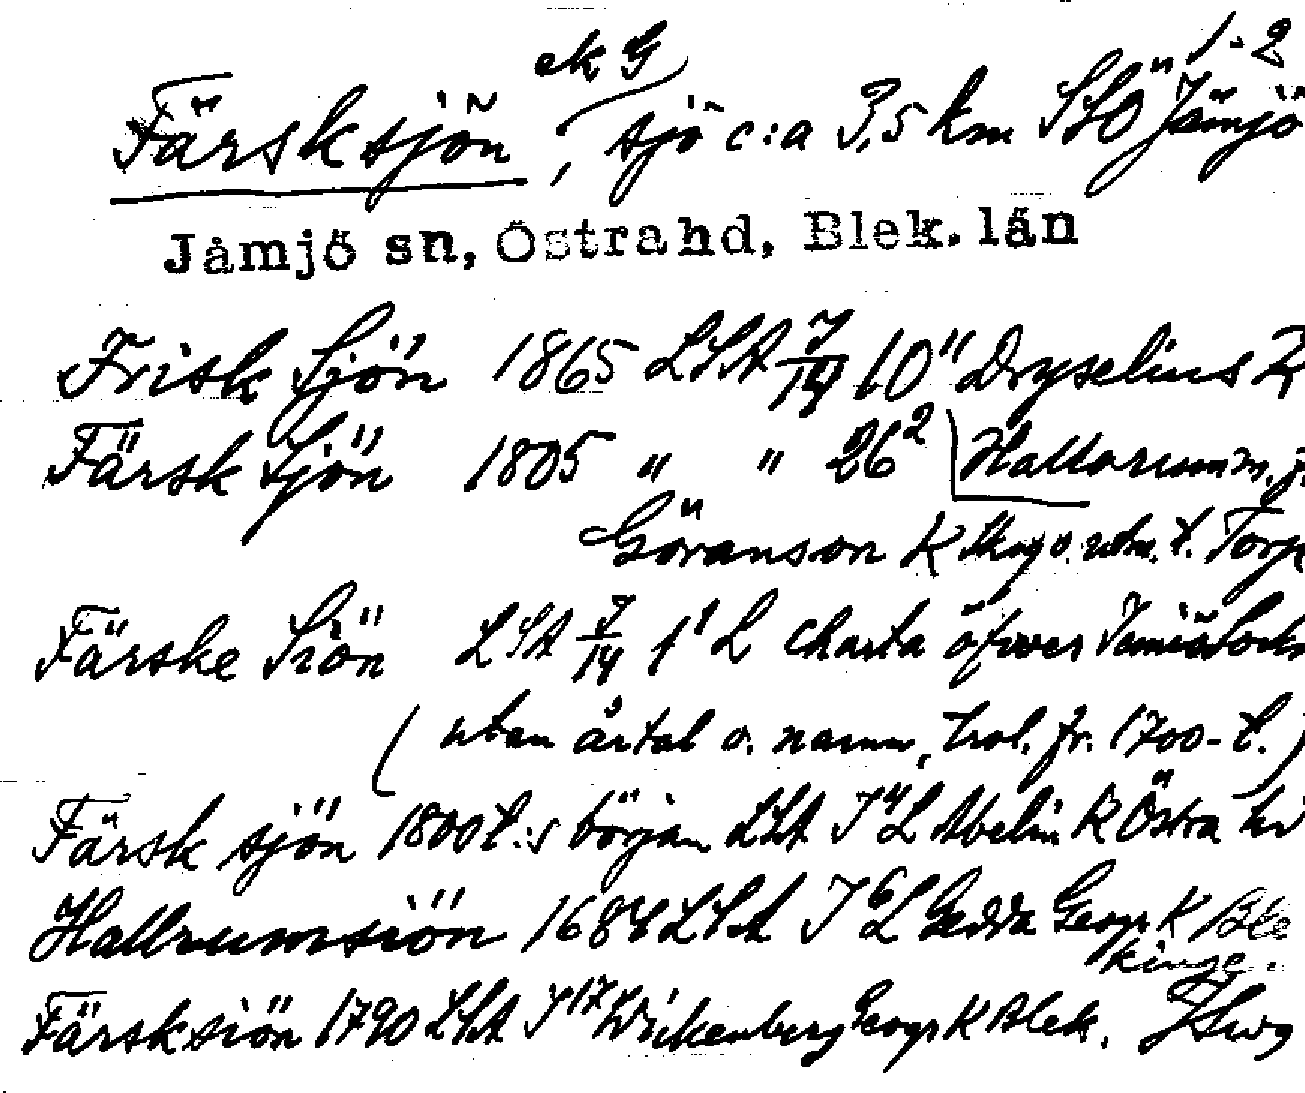 ek G 1-2
Färsksjön, sjö c:a 3,5 km SSO Jämjö
Jämjö sn, Östra hd, Blek. län
Frisk Sjön 1865 LSA J/14 10" Dryselius
Färsk Sjön 1805 " " 26² Hallarum m. fl.
Göranson K Skog o. utm. t. Torp
Färske Siön LSA J/14 1¹ L Charta öfwer Jämiö Sock
(utan årtal o. namn, trol. fr. 1700-t.)
Färsk sjön 1800 t:s början LSA J⁴L Abelin K Östra hd
Hallrumsiön 1684 LSA J⁶L Gedda Geogr K Ble
kinge.
Färsksiön 1790 LSA J¹⁷ Wickenberg Geogr K Blek.